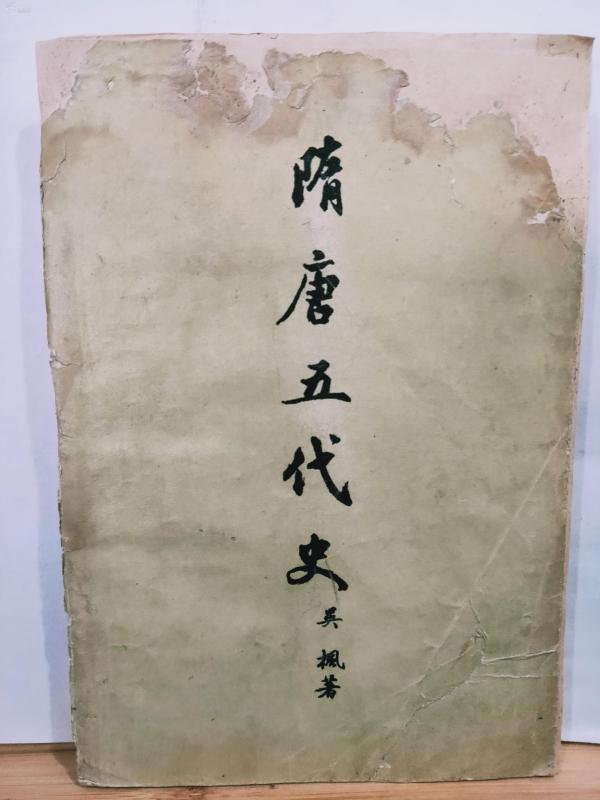 隋唐五代史
吴楓著